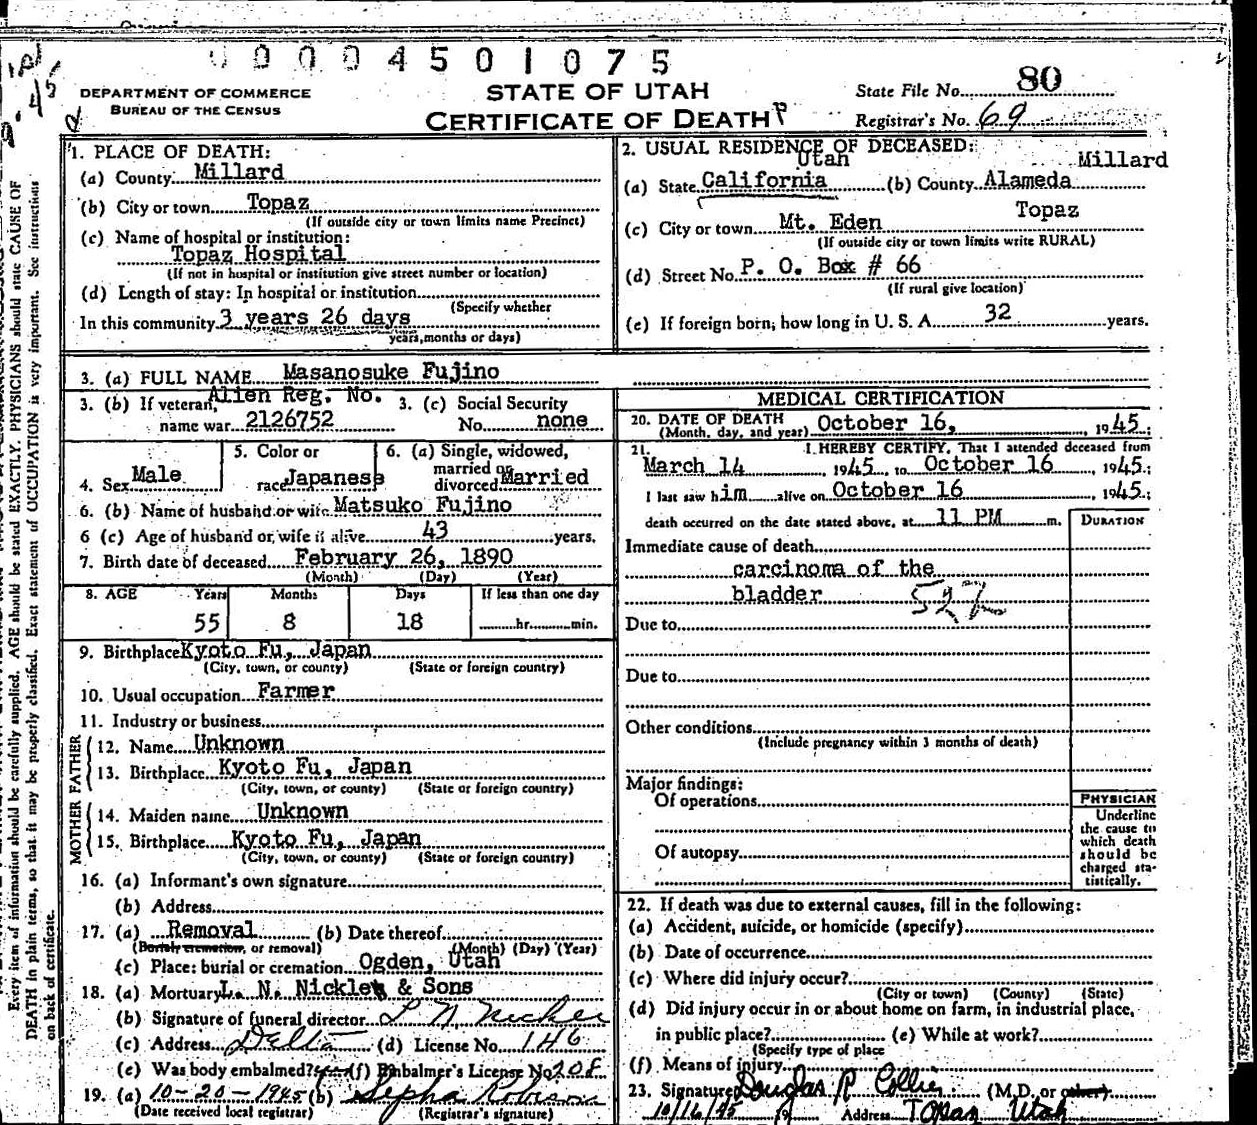 00004501075
DEPARTMENT OF COMMERCE
BUREAU OF THE CENSUS
STATE OF UTAH
CERTIFICATE OF DEATH
State File No. 80
Registrar's No. 69
Every item of information should be carefully supplied. AGE should be stated EXACTLY. PHYSICIANS should state CAUSE OF
DEATH in plain terms, so that it may be properly classified. Exact statement of OCCUPATION is very important. See instructions
on back of certificate.
1. PLACE OF DEATH:
(a) County Millard
(b) City or town Topaz
(If outside city or town limits name Precinct)
(c) Name of hospital or institution:
Topaz Hospital
(If not in hospital or institution give street number or location)
(d) Length of stay: In hospital or institution
(Specify whether
In this community 3 years 26 days
years, months or days)
2. USUAL RESIDENCE OF DECEASED:
Utah Millard
(a) State California (b) County Alameda
Topaz
(c) City or town Mt. Eden
(If outside city or town limits write RURAL)
(d) Street No. P. O. Box # 66
(If rural give location)
(e) If foreign born, how long in U. S. A. 32 years.
3. (a) FULL NAME Masanosuke Fujino
3. (b) If veteran, Alien Reg. No. 3. (c) Social Security
name war 2126752 No. none
4. Sex Male
5. Color or
race Japanese
6. (a) Single, widowed,
married or
divorced Married
6. (b) Name of husband or wife Matsuko Fujino
6 (c) Age of husband or wife if alive 43 years.
7. Birth date of deceased February 26, 1890
(Month) (Day) (Year)
8. AGE Years Months Days If less than one day
55 8 18 hr. min.
9. Birthplace Kyoto Fu, Japan
(City, town, or county) (State or foreign country)
10. Usual occupation Farmer
11. Industry or business
FATHER
12. Name Unknown
13. Birthplace Kyoto Fu, Japan
(City, town, or county) (State or foreign country)
MOTHER
14. Maiden name Unknown
15. Birthplace Kyoto Fu, Japan
(City, town, or county) (State or foreign country)
16. (a) Informant's own signature
(b) Address
17. (a) Removal (b) Date thereof
(Burial, cremation, or removal) (Month) (Day) (Year)
(c) Place: burial or cremation Ogden, Utah
18. (a) Mortuary L. N. Nickle & Sons
(b) Signature of funeral director L N
(c) Address Delta (d) License No. 146
(e) Was body embalmed? yes (f) Embalmer's License No. 208
19. (a) 10-20-1945 (b)
(Date received local registrar) (Registrar's signature)
MEDICAL CERTIFICATION
20. DATE OF DEATH
(Month, day, and year) October 16, 1945;
21. I HEREBY CERTIFY, That I attended deceased from
March 14 1945, to October 16 1945;
I last saw him alive on October 16 1945;
death occurred on the date stated above, at 11 PM m.
DURATION
Immediate cause of death
carcinoma of the
bladder
Due to
Due to
Other conditions
(Include pregnancy within 3 months of death)
Major findings:
Of operations
Of autopsy
PHYSICIAN
Underline
the cause to
which death
should be
charged sta-
tistically.
22. If death was due to external causes, fill in the following:
(a) Accident, suicide, or homicide (specify)
(b) Date of occurrence
(c) Where did injury occur?
(City or town) (County) (State)
(d) Did injury occur in or about home on farm, in industrial place,
in public place? (e) While at work?
(Specify type of place
(f) Means of injury
23. Signature Douglas R Collier (M.D. or other)
10/16/45 Address Topaz Utah